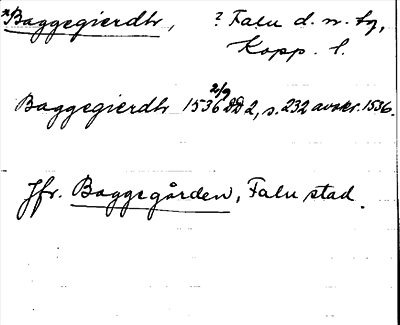 *Baggegierdtr, ? Falu d. n. tg,
Kopp. l.
Baggegierdtr 1536 2/9 DD 2, s. 232 avskr. 1536.
Jfr. Baggegården, Falu stad.